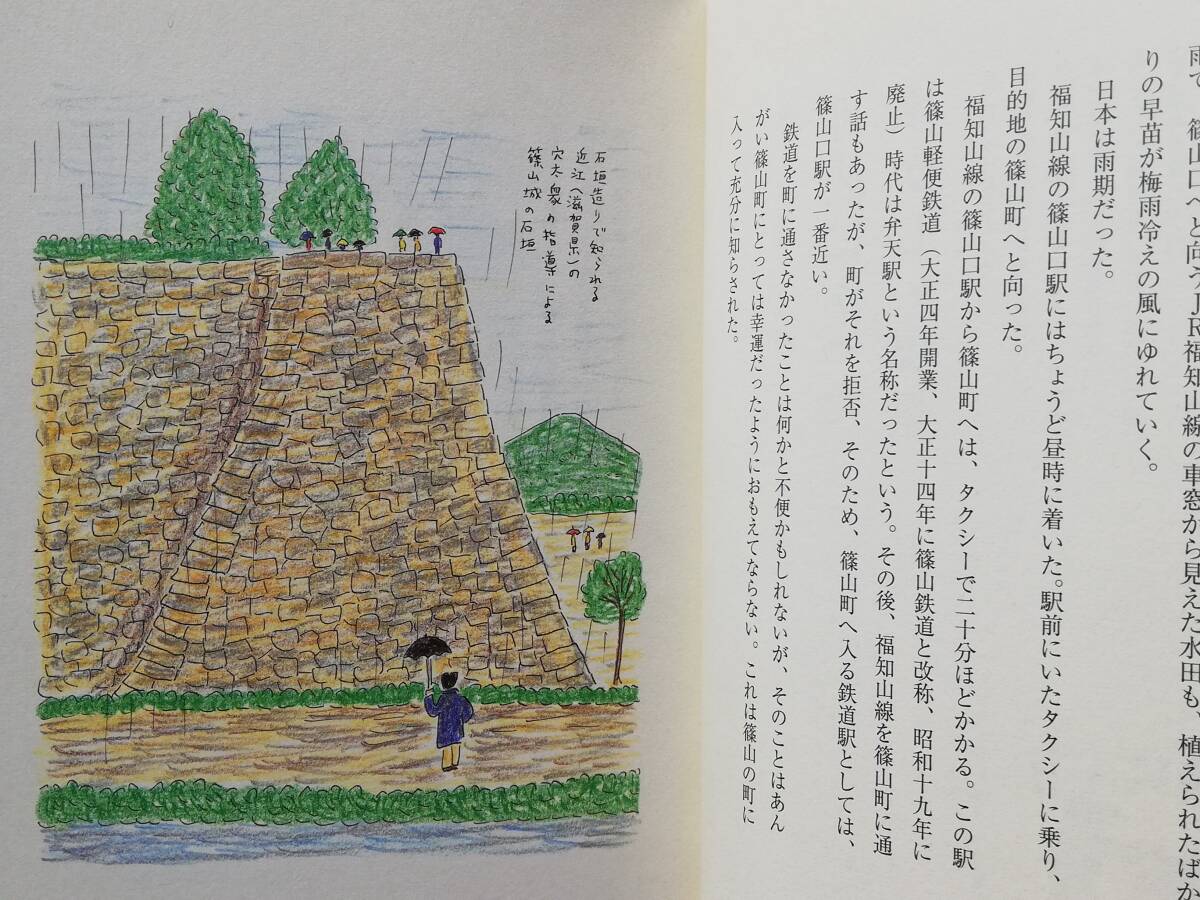 雨で、篠山口へと向うJR福知山線の車窓から見えた水田も、植えられたばか
りの早苗が梅雨冷えの風にゆれていく。
日本は雨期だった。
福知山線の篠山口駅にはちょうど昼時に着いた。駅前にいたタクシーに乗り、
目的地の篠山町へと向った。
福知山線の篠山口駅から篠山町へは、タクシーで二十分ほどかかる。この駅
は篠山軽便鉄道（大正四年開業、大正十四年に篠山鉄道と改称、昭和十九年に
廃止）時代は弁天駅という名称だったという。その後、福知山線を篠山町に通
す話もあったが、町がそれを拒否、そのため、篠山町へ入る鉄道駅としては、
篠山口駅が一番近い。
鉄道を町に通さなかったことは何かと不便かもしれないが、そのことはあん
がい篠山町にとっては幸運だったようにおもえてならない。これは篠山の町に
入って充分に知らされた。
石垣造りで知られる
近江（滋賀県）の
穴太衆の指導による
篠山城の石垣